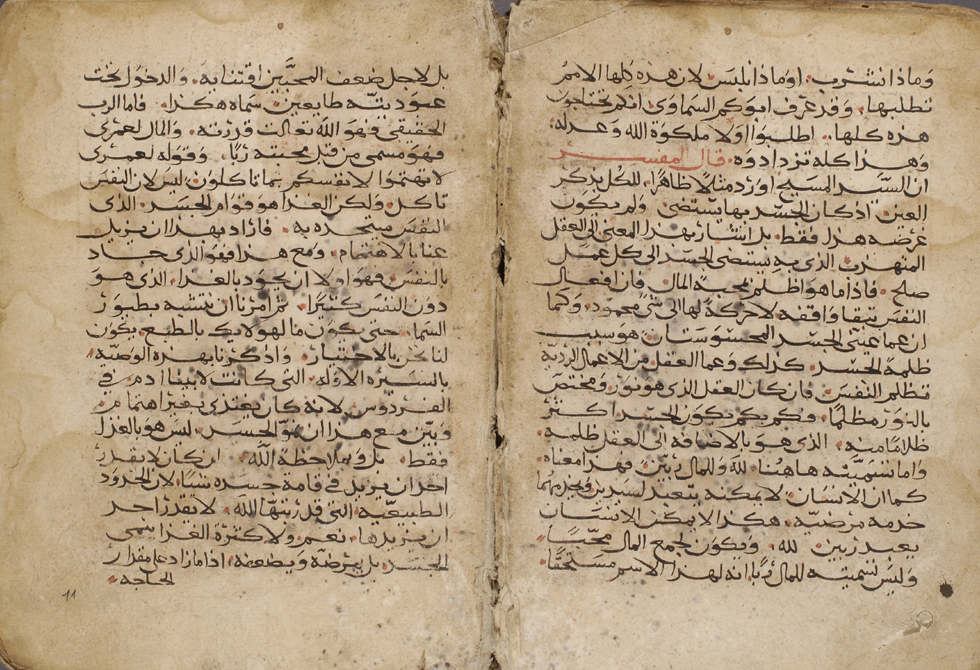 وماذا نشرب. او ماذا نلبس لان هذه كلها الامم
تطلبها. وقد عرف ابوكم السماوى انكم تحتاجون
هذه كلها. اطلبوا اولا ملكوة الله وعدله.
وهذا كله تزدادوه. قال المفسر
ان السيد المسيح اورد مثالا ظاهرا للكل بذكر
العين. اذ كان الجسد بها يستضى. ولم يكون
غرضه هذا فقط. بل اشار بهذا المعنى الى العقل
المتهذب الذى به يستضى الجسد الى كل عمل
صالح. فاذا ما هو اظلم بمحبة المال. فان افعال
النفس تبقا واقفة لا حركة لها الى شى محمود. وكما
ان عما عينى الجسد المحسوستان. هو سبب
ظلمة الجسد. كذلك وعما العقل من الاعمال الردية
تظلم النفس. فان كان العقل الذى هو نور ومختص
بالنور مظلما. فكم بكم يكون الجسد اكثر
ظلاما منه. الذى هو بالاضافة الى العقل ظلمة.
واما تسميته هاهنا. لله وللمال ربين. فهذا معناه
كما ان الانسان لا يمكنه يتعبد لسيدين ويخدمهما
خدمة مرضية. هكذا لا يمكن الانسان
يعبد ربين لله. ويكون لجمع المال محبا.
وليس تسميته للمال ربا. انه لهذا الاسم مستحقا.
بل لاجل ضعف المحبين اقتنايه. والدخول تحت
عبوديته طايعين. سماه هكذا. فاما الرب
الحقيقى فهو الله تعالت قدرته. والمال لعمرى
فهو مسمى من قبل محبته ربا. وقوله لعمرى
لا تهتموا لانفسكم بما تاكلون. ليس لان النفس
تاكل. ولكن الغدا هو قوام الجسد. الذى
النفس متحده به. فاراد بهذا ان يزيل
عنا بالاهتمام. ومع هذا فهو الذى جاد
بالنفس. فهو اولا ان يجود بالغدا. الذى هو
دون النفس كثيرا. ثم امرنا ان نتشبه بطيور
السما. حتى يكون ما لهولايك بالطبع. يكون
لنا نحن بالاختيار. واذكرنا بهذه الوصية
بالسيره الاوله. التى كانت لابينا ادم فى
الفردوس. لانه كان يغتدى بغير اهتمام.
وبين مع هذا ان نمو الجسد. ليس هو بالغدا
فقط. بل وبملاحظة الله. ان كان لا يقدر
احد ان يزيد فى قامة جسده شيا. لان الحدود
الطبيعية التى قد رتبها الله. لا يقدر احد
ان يزيدها. نعم ولا كثرة الغدا ينمى
الجسد. بل يمرضة ويضعفه. اذا ما زاد على مقدار
الحاجه
11